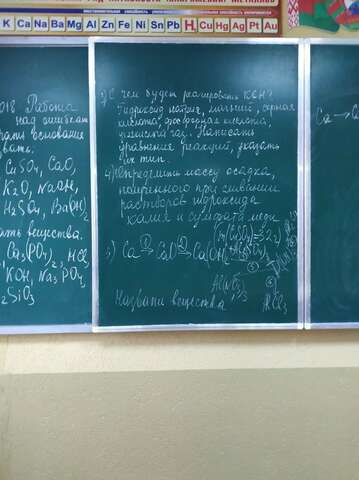 K Ca Na Mg Al Zn Fe Ni Sn Pb H₂ Cu Hg Ag Pt Au
2018 Работа
над ошибкам
основания
CuSO₄, CaO,
K₂O, NaOH,
H₂SO₄, Ba(OH)₂
вещества.
Ca₃(PO₄)₂, HCl,
KOH, Na₃PO₄,
₂SiO₃
3) С чем будет реагировать KOH?
Гидроксид натрия, магний, серная
кислота, фосфорная кислота,
углекислый газ. Написать
уравнения реакций, указать
их тип.
4) Определить массу осадка,
полученного при сливании
растворов гидроксида
калия и сульфата меди
(m(CuSO₄)=32 г)
5) Ca →① CaO →② Ca(OH)₂
Al(NO₃)₃
AlCl₃
Назвать вещества
Ca →